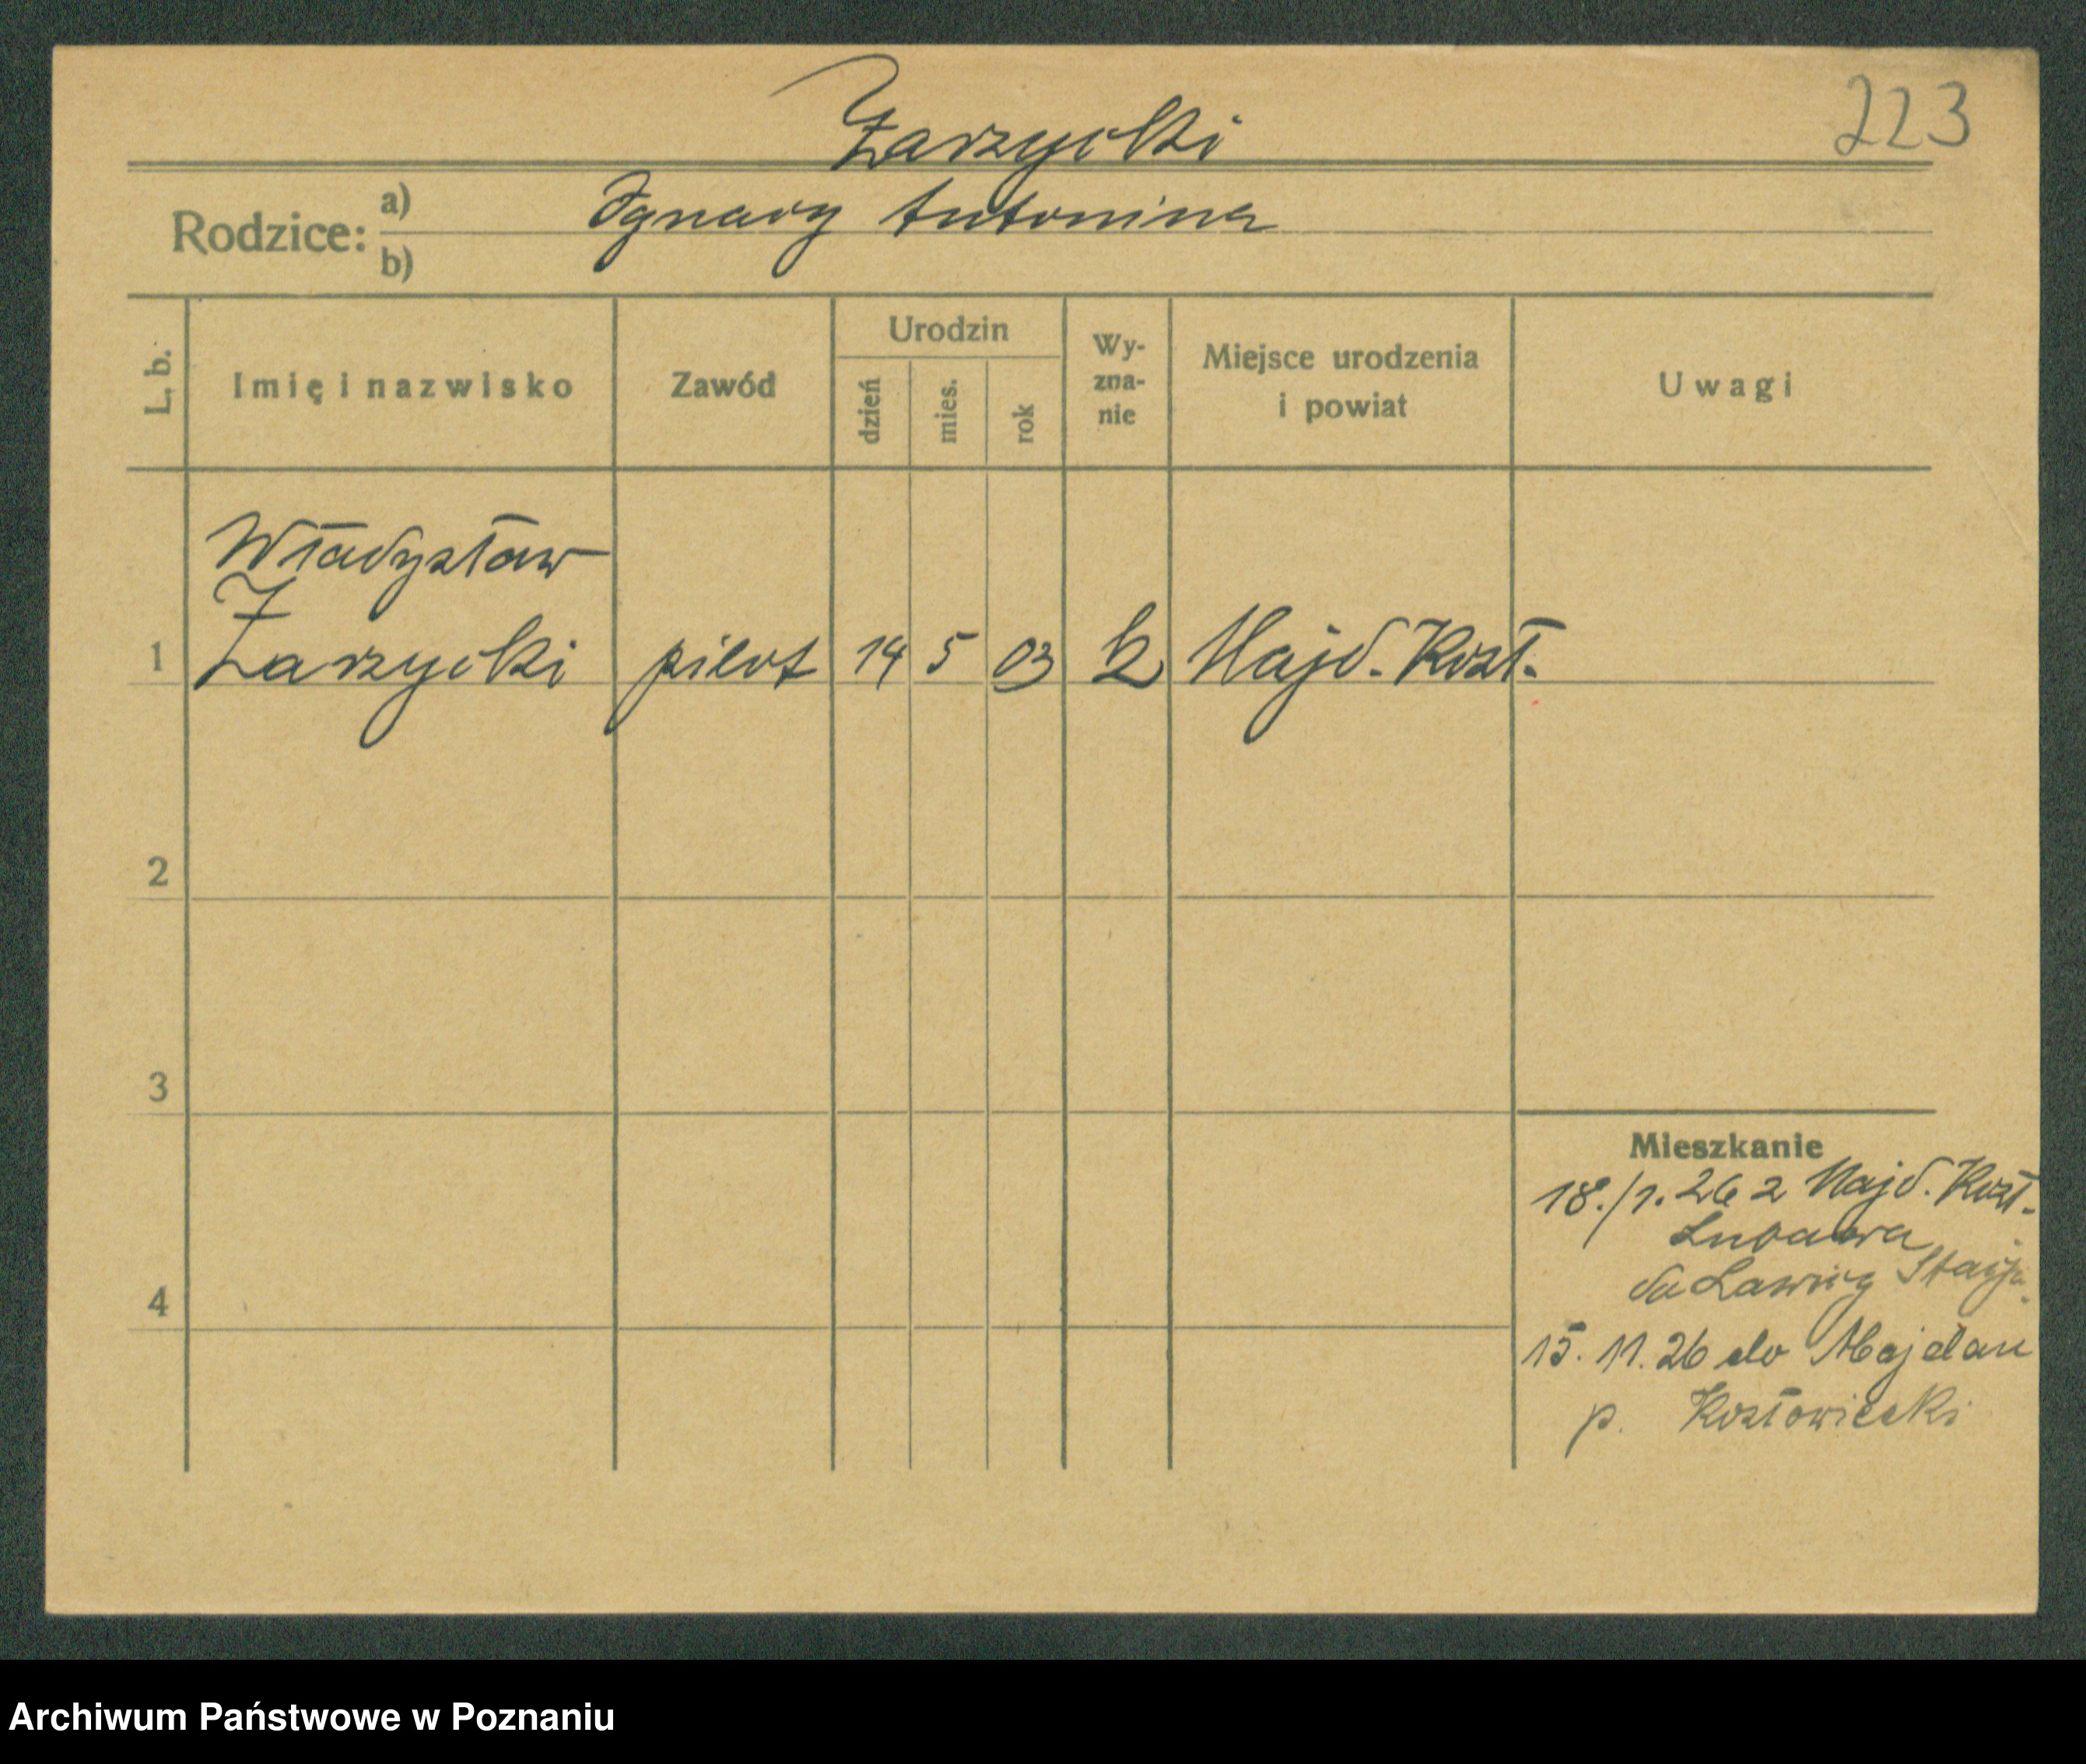 223
Zarzycki
Rodzice: a) Ignacy Antonina
b)
L. b. Imię i nazwisko Zawód Urodzin dzień mies. rok Wy-zna-nie Miejsce urodzenia i powiat Uwagi
Władysław
1 Zarzycki pilot 14 5 03 Majd. Kozł.
2
3
Mieszkanie
18./1. 26 z Majd. Kozł.
do Ławicy Stacja
4
15. 11. 26 do Majdan
p. Kozłowiecki
Archiwum Państwowe w Poznaniu